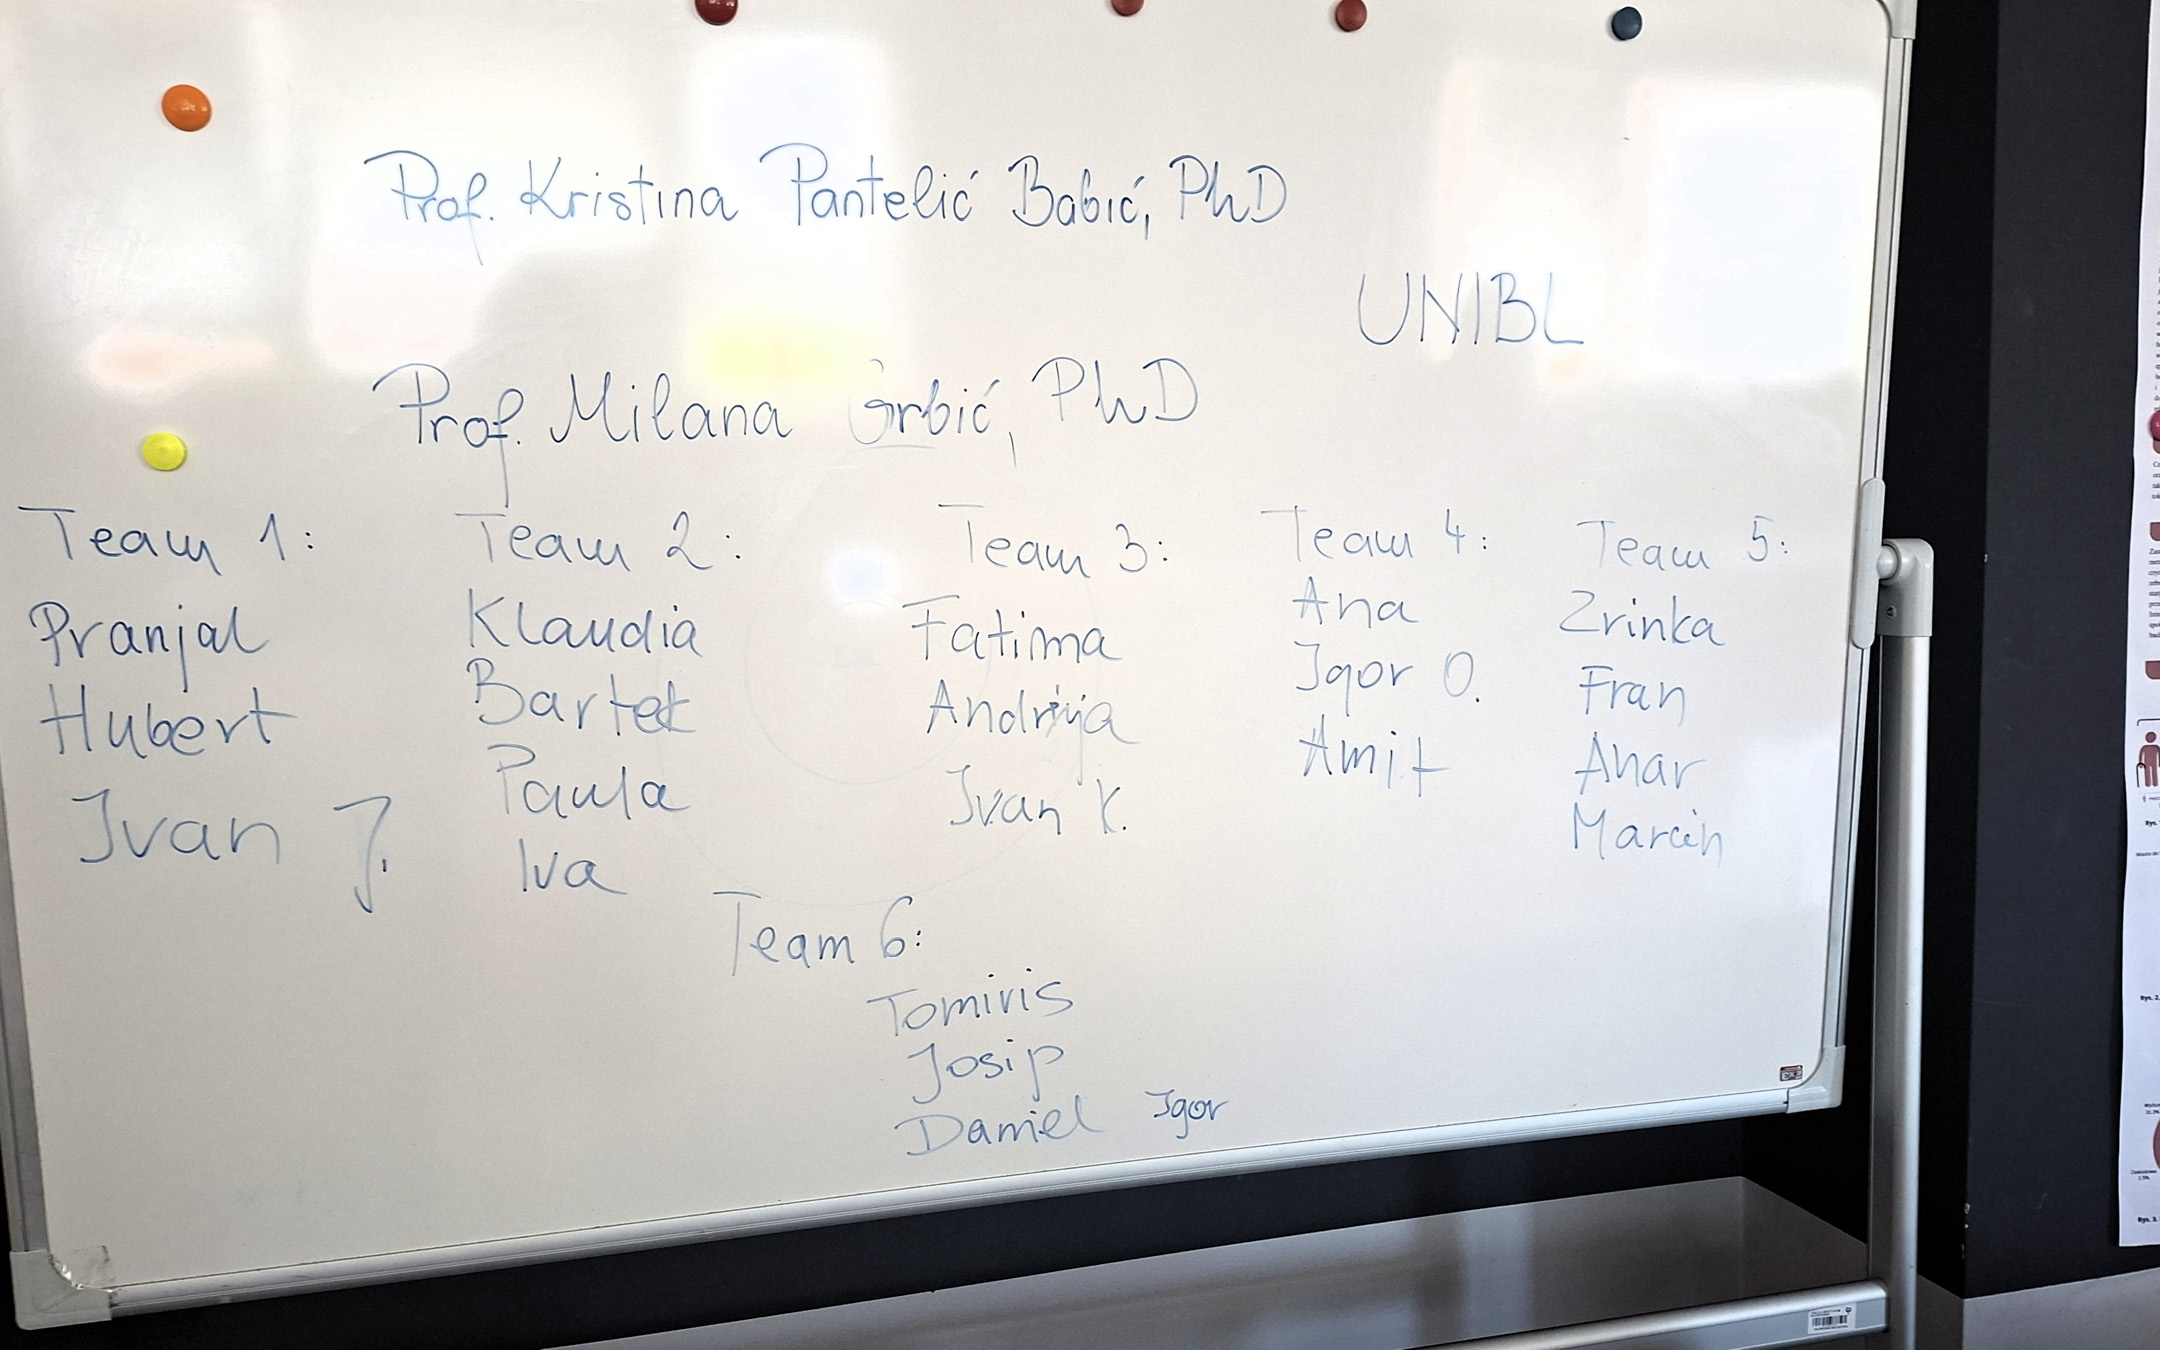 Prof. Kristina Pantelić Babić, PhD
UNIBL
Prof. Milana Grbić, PhD
Team 1:
Pranjal
Hubert
Ivan J.
Team 2:
Klaudia
Bartek
Paula
Iva
Team 3:
Fatima
Andrija
Ivan K.
Team 4:
Ana
Igor O.
Amit
Team 5:
Zrinka
Fran
Anar
Marcin
Team 6:
Tomiris
Josip
Daniel Igor